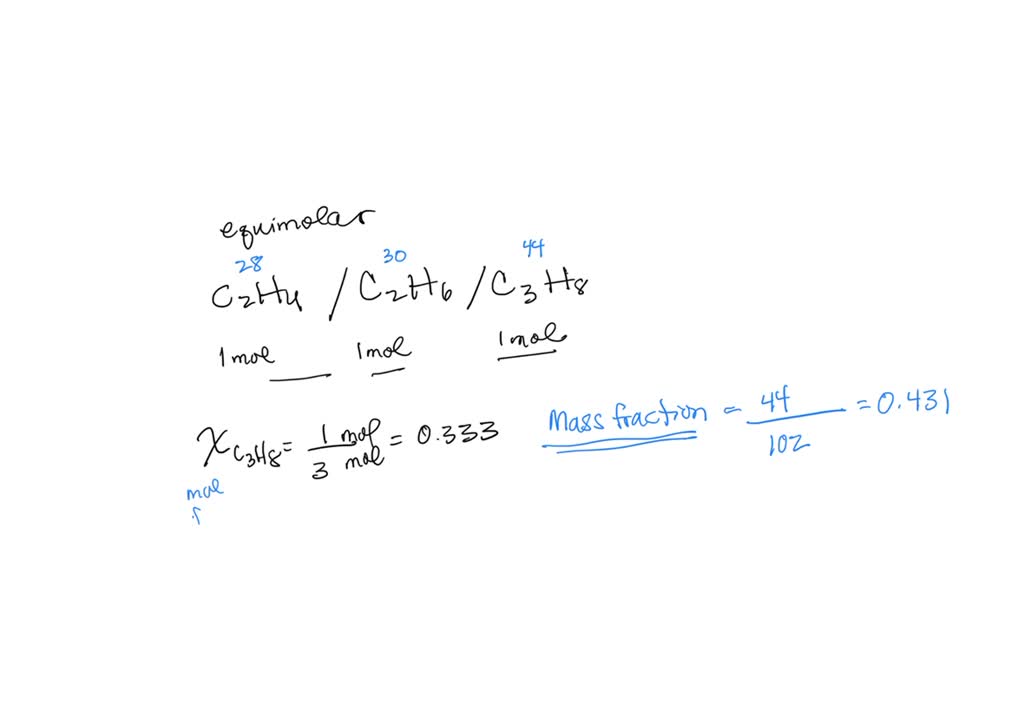 equimolar
28 30 44
C₂H₄ / C₂H₆ / C₃H₈
1 mol 1 mol 1 mol
χ_C₃H₈ = 1 mol / 3 mol = 0.333
Mass fraction = 44 / 102 = 0.431
mol
f